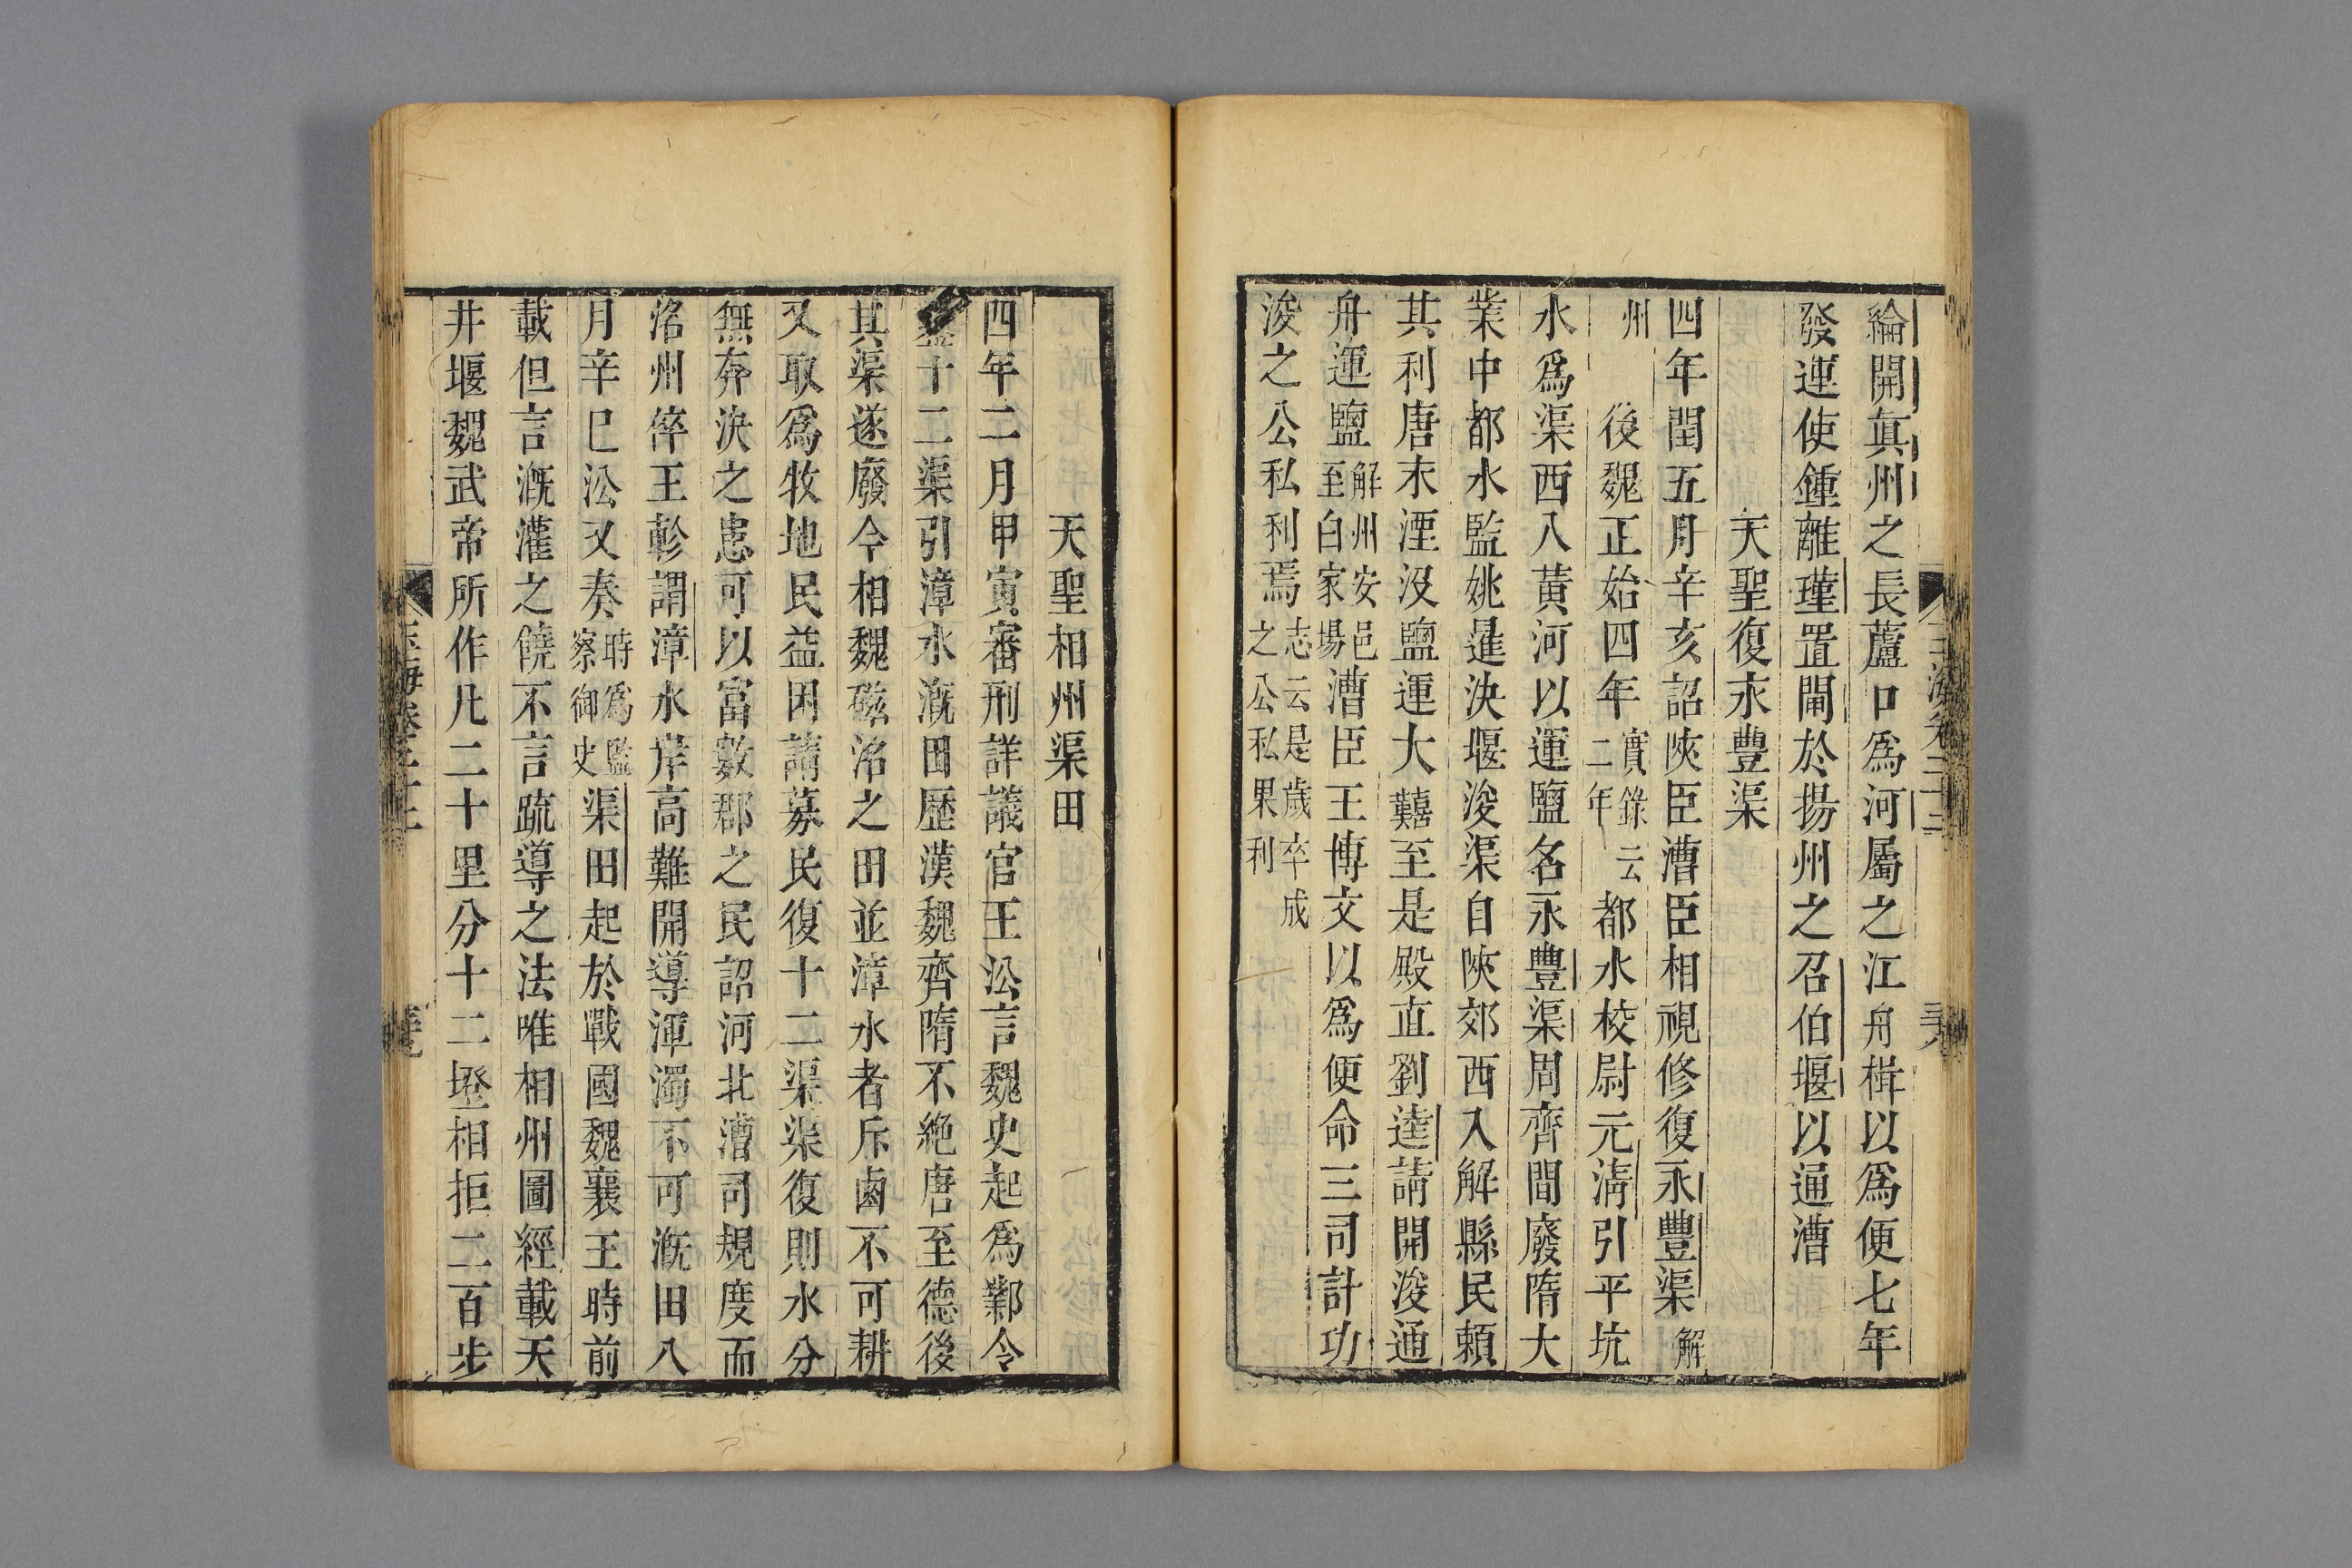 綸開眞州之長蘆口爲河屬之江舟楫以爲便七年
發運使鍾離瑾置閘於揚州之召伯堰以通漕
天聖復永豐渠
四年閏五月辛亥詔陝臣漕臣相視修復永豐渠解
州　後魏正始四年實錄云二年都水校尉元淸引平坑
水爲渠西入黃河以運鹽名永豐渠周齊間廢隋大
業中都水監姚暹決堰浚渠自陝郊西入解縣民賴
其利唐末湮沒鹽運大囏至是殿直劉逵請開浚通
舟運鹽解州安邑至白家場漕臣王博文以爲便命三司計功
浚之公私利焉志云是歲卒成之公私果利
天聖相州渠田
四年二月甲寅審刑詳議官王㳂言魏史起爲鄴令
鑿十二渠引漳水漑田歷漢魏齊隋不絶唐至德後
其渠遂廢今相魏磁洺之田並漳水者斥鹵不可耕
又取爲牧地民益困請募民復十二渠渠復則水分
無奔決之患可以富數郡之民詔河北漕司規度而
洺州倅王軫謂漳水岸高難開導渾濁不可漑田八
月辛巳㳂又奏時爲監察御史渠田起於戰國魏襄王時前
載但言漑灌之饒不言疏導之法唯相州圖經載天
井堰魏武帝所作凡二十里分十二墱相拒二百步